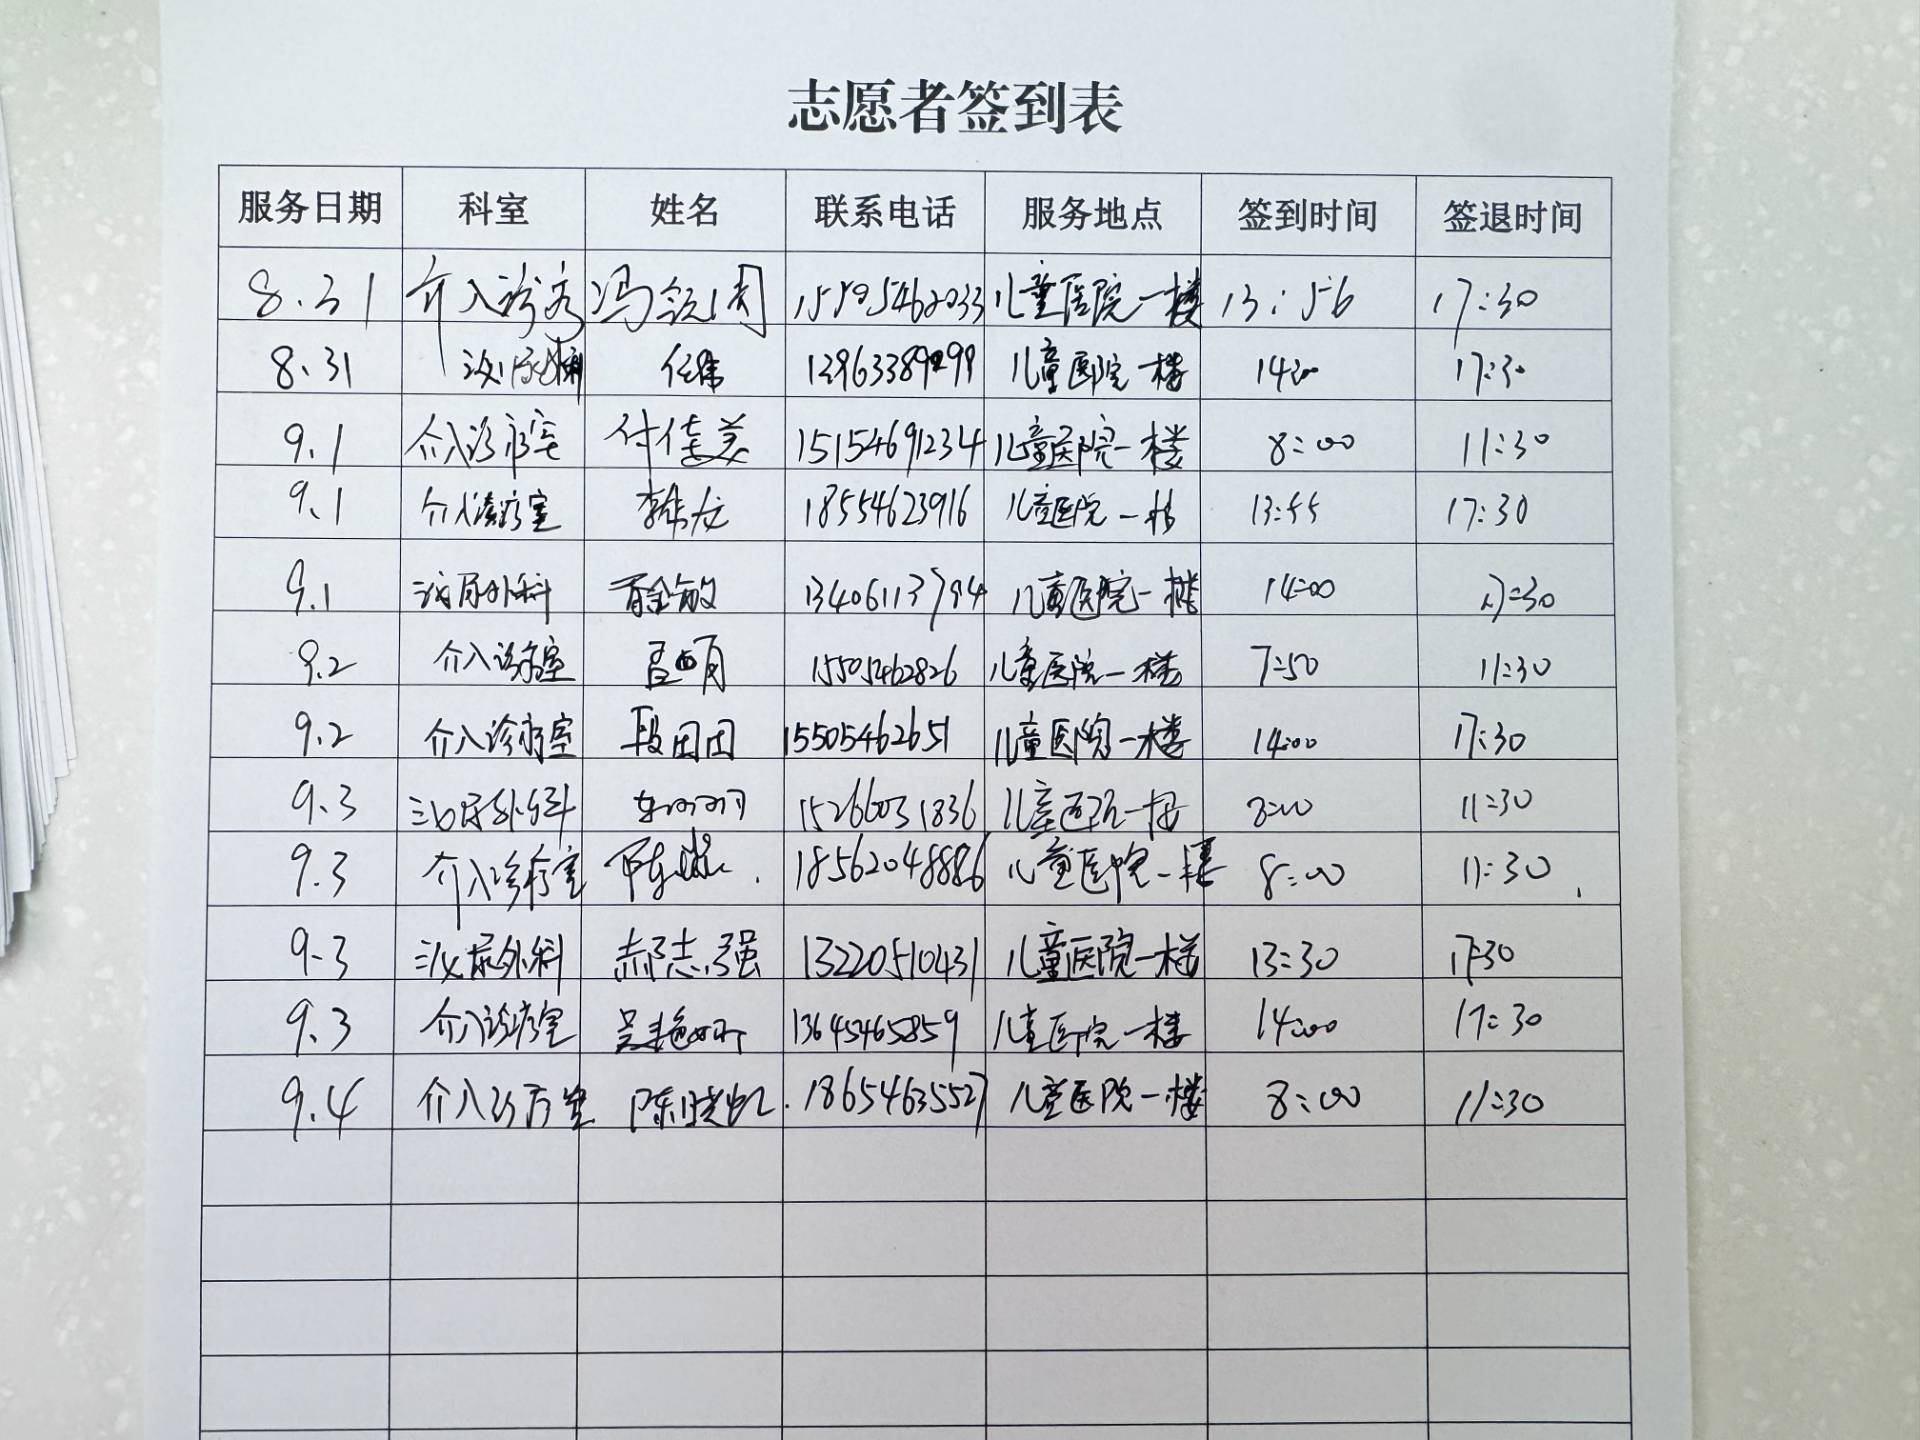 志愿者签到表
服务日期 科室 姓名 联系电话 服务地点 签到时间 签退时间
8.31 介入诊疗 冯 15505462033 儿童医院一楼 13:56 17:30
8.31 泌尿外科 任伟 儿童医院一楼 14:00 17:30
9.1 介入诊疗室 付佳美 15154691234 儿童医院一楼 8:00 11:30
9.1 介入诊疗室 李龙 18554623916 儿童医院一楼 13:55 17:30
9.1 泌尿外科 敏 13406113794 儿童医院一楼 14:00 17:30
9.2 介入诊疗室 15505462826 儿童医院一楼 7:50 11:30
9.2 介入诊疗室 段团团 15505462651 儿童医院一楼 14:00 17:30
9.3 泌尿外科 15266031836 儿童医院一楼 8:00 11:30
9.3 介入诊疗室 陈 18562048886 儿童医院一楼 8:00 11:30
9.3 泌尿外科 郝志强 13220510431 儿童医院一楼 13:30 17:30
9.3 介入诊疗室 吴艳 13645465859 儿童医院一楼 14:00 17:30
9.4 介入诊疗室 陈晓 18654635527 儿童医院一楼 8:00 11:30